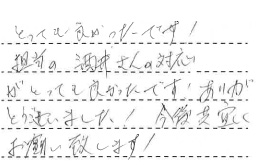 とっても良かったです!
担当の酒井さんの対応
がとっても良かったです!ありが
とう迄いました!今後共宜しく
お願い致します!